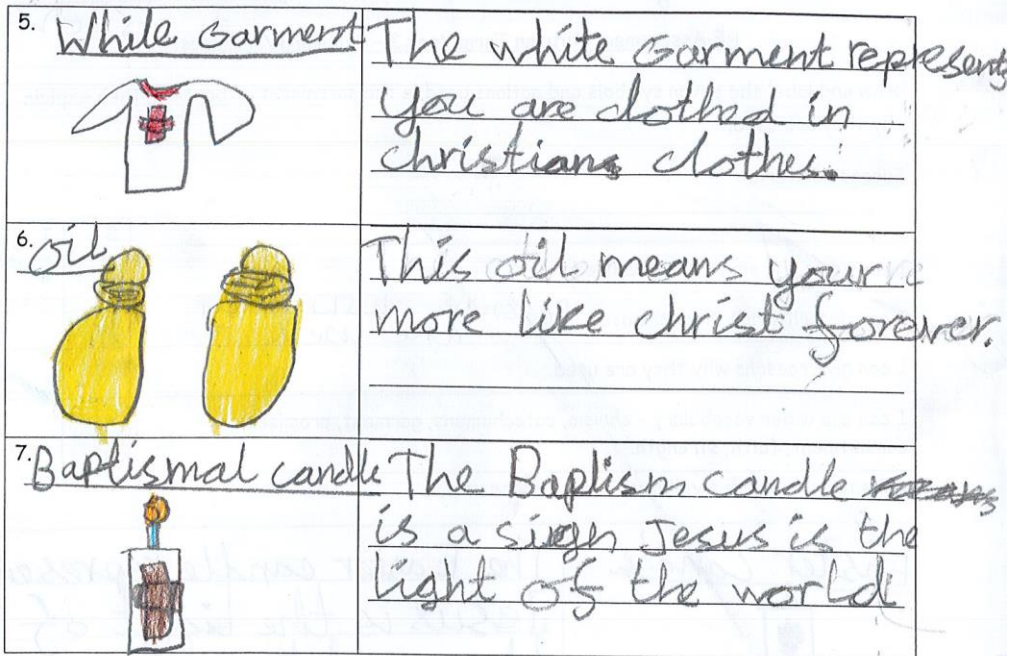 5. White Garment
The white Garment represents
you are clothed in
christians clothes.
6. oil
This oil means your're
more like christ forever.
7. Baptismal candle
The Baptism candle
is a siogn Jesus is the
light of the world